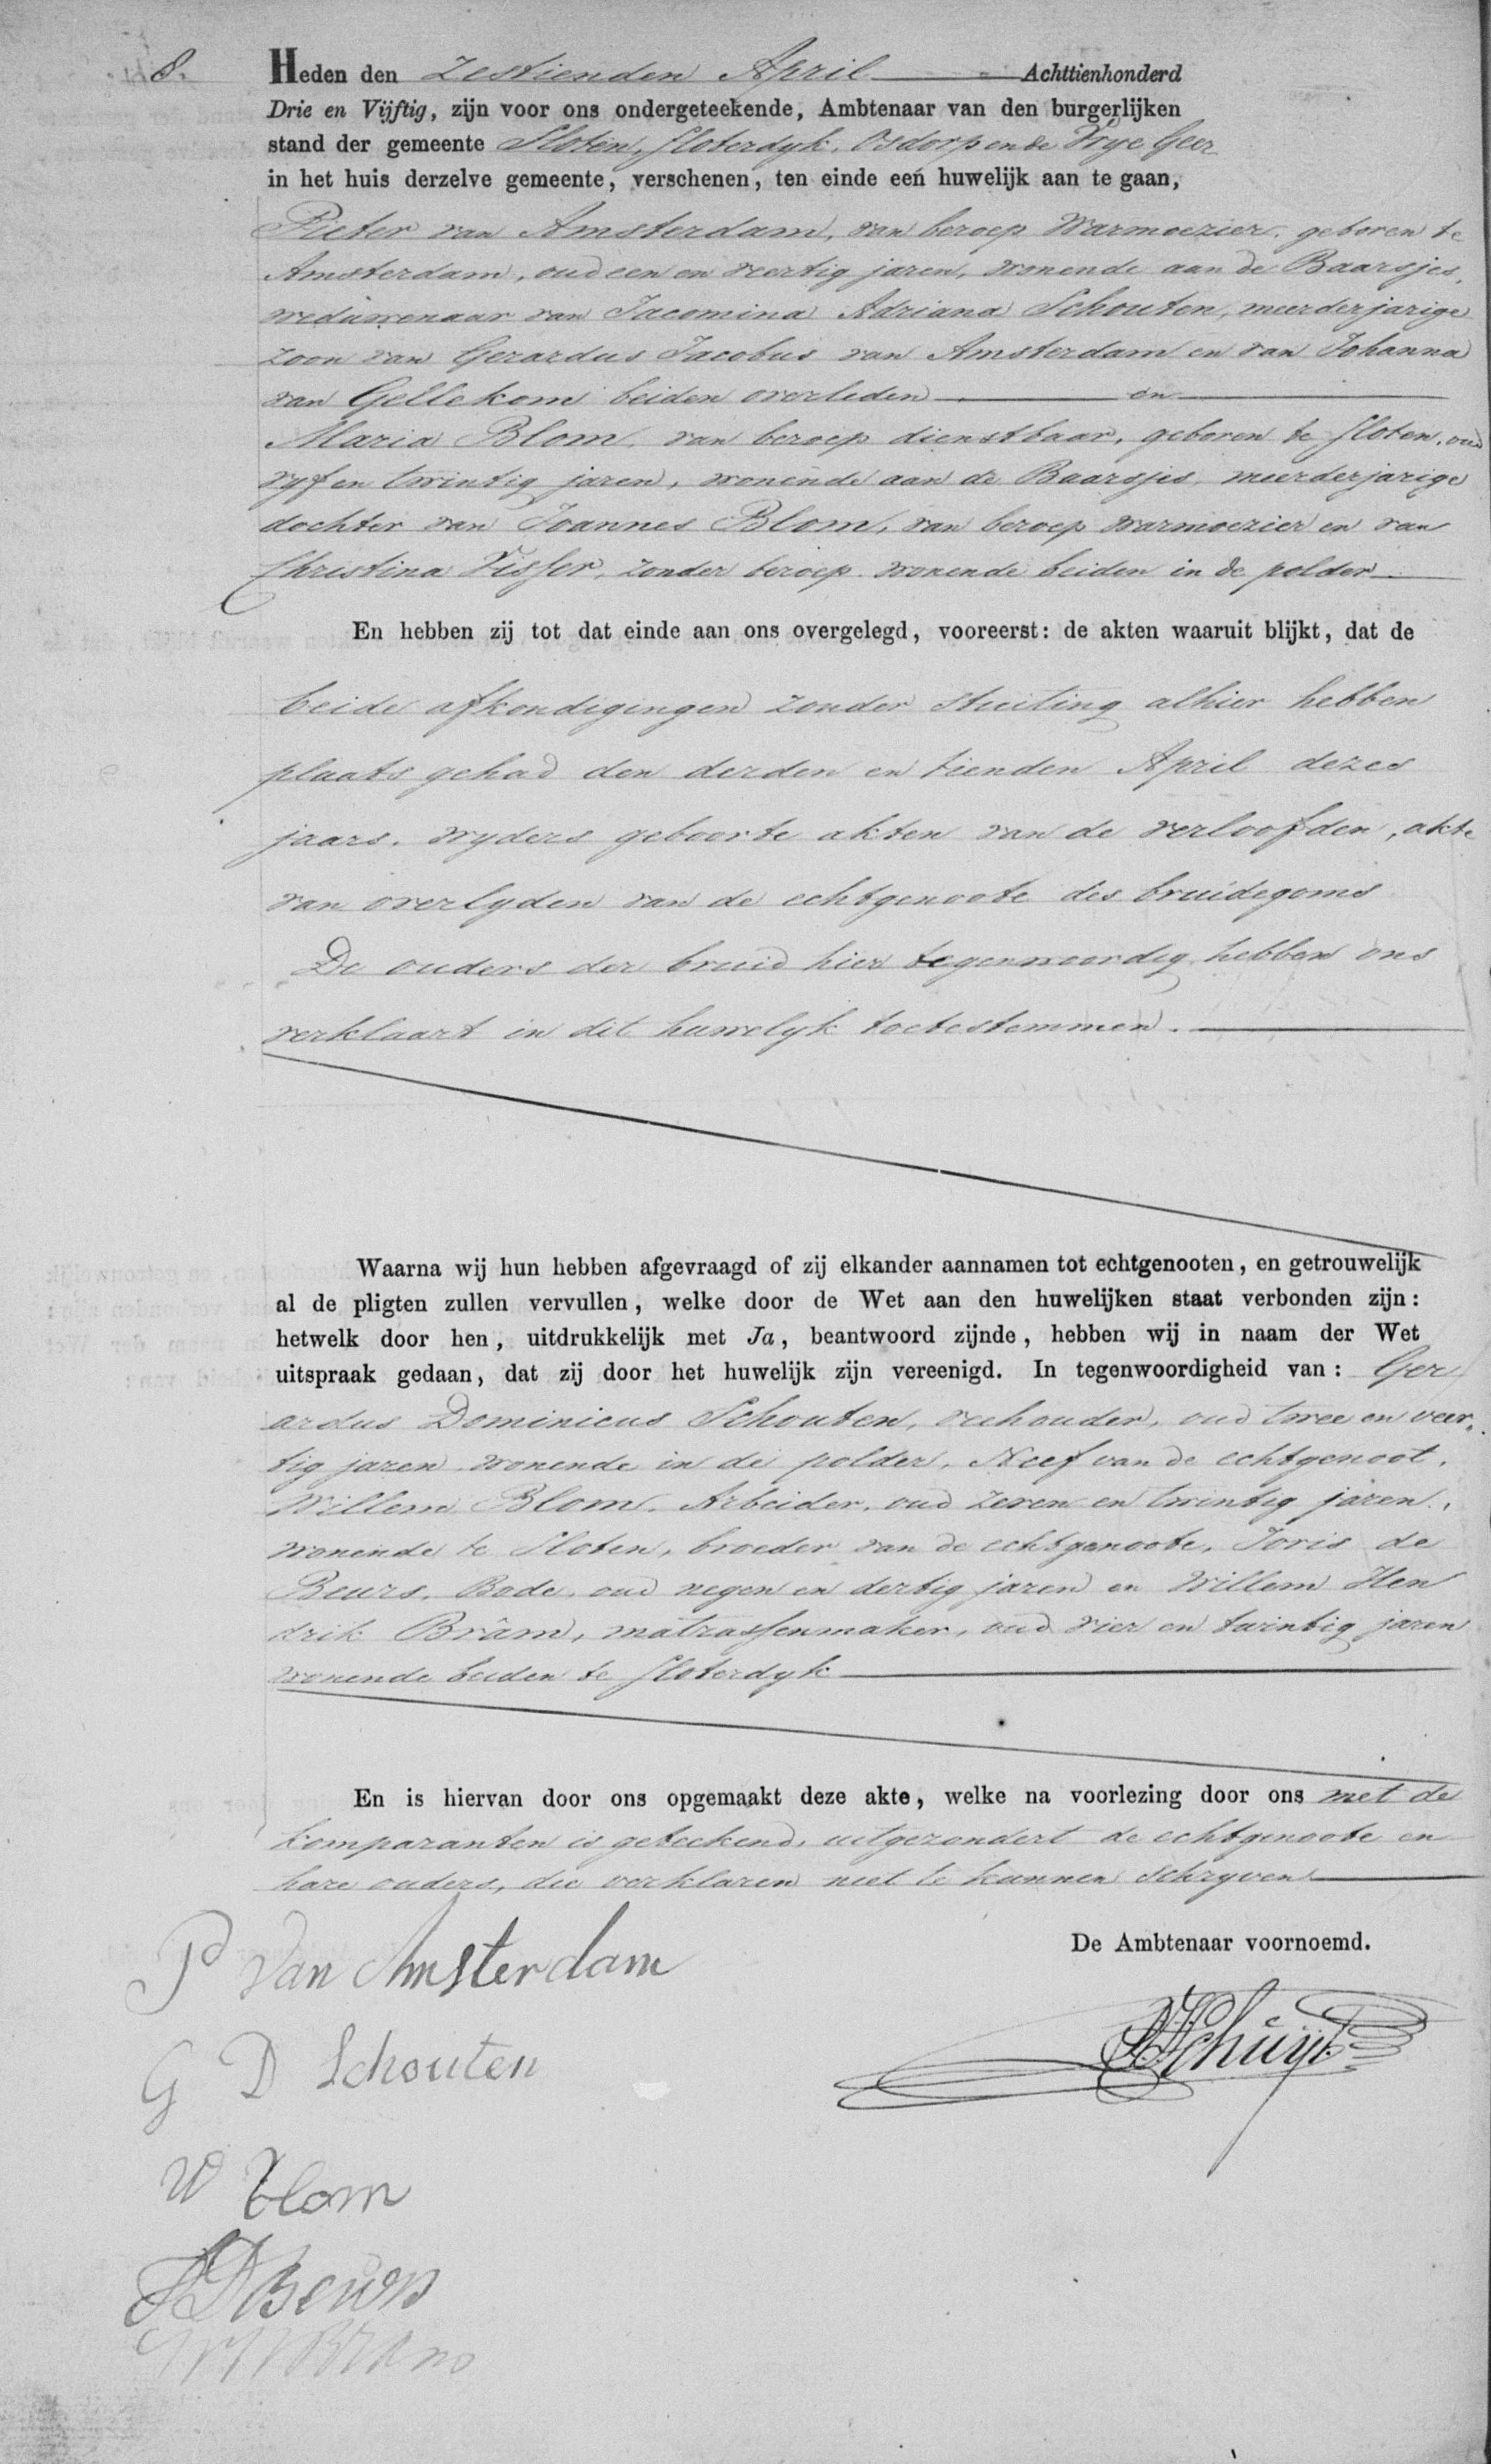 8.
Heden den Zestienden April Achttienhonderd
Drie en Vijftig, zijn voor ons ondergeteekende, Ambtenaar van den burgerlijken
stand der gemeente Sloten, Sloterdyk, Osdorp en de Vrye Geer
in het huis derzelve gemeente, verschenen, ten einde een huwelijk aan te gaan,
Pieter van Amsterdam, van beroep Warmoezier, geboren te
Amsterdam, oud een en veertig jaren, wonende aan de Baarsjes,
weduwenaar van Jacomina Adriana Schouten, meerderjarige
zoon van Gerardus Jacobus van Amsterdam en van Johanna
van Gellekom beiden overleden en
Maria Blom, van beroep dienstbaar, geboren te Sloten, oud
vyf en twintig jaren, wonende aan de Baarsjes, meerderjarige
dochter van Joannes Blom, van beroep warmoezier en van
Christina Visser, zonder beroep wonende beiden in de polder
En hebben zij tot dat einde aan ons overgelegd, vooreerst: de akten waaruit blijkt, dat de
beide afkondigingen zonder stuiting alhier hebben
plaats gehad den derden en tienden April dezes
jaars. wyders geboorte akten van de verloofden, akte
van overlyden van de echtgenoote des bruidegoms
De ouders der bruid hier tegenwoordig hebben ons
verklaart in dit huwelyk toetestemmen.
Waarna wij hun hebben afgevraagd of zij elkander aannamen tot echtgenooten, en getrouwelijk
al de pligten zullen vervullen, welke door de Wet aan den huwelijken staat verbonden zijn:
hetwelk door hen, uitdrukkelijk met Ja, beantwoord zijnde, hebben wij in naam der Wet
uitspraak gedaan, dat zij door het huwelijk zijn vereenigd. In tegenwoordigheid van: Ger
ardus Dominicus Schouten, veehouder, oud twee en veer,
tig jaren wonende in de polder, Neef van de echtgenoot,
Willem Blom, Arbeider, oud zeven en twintig jaren,
wonende te Sloten, broeder van de echtgenoote, Joris de
Beurs, Bode, oud negen en dertig jaren en Willem Hen
drik Brâm, matrassenmaker, oud vier en twintig jaren
wonende beiden te Sloterdyk
En is hiervan door ons opgemaakt deze akte, welke na voorlezing door ons met de
komparanten is geteekend, uitgezondert de echtgenoote en
hare ouders, die verklaren niet te kunnen schryven
De Ambtenaar voornoemd.
P van Amsterdam
Schuyt
G D Schouten
W Blom
J D Beurs
W H Bram